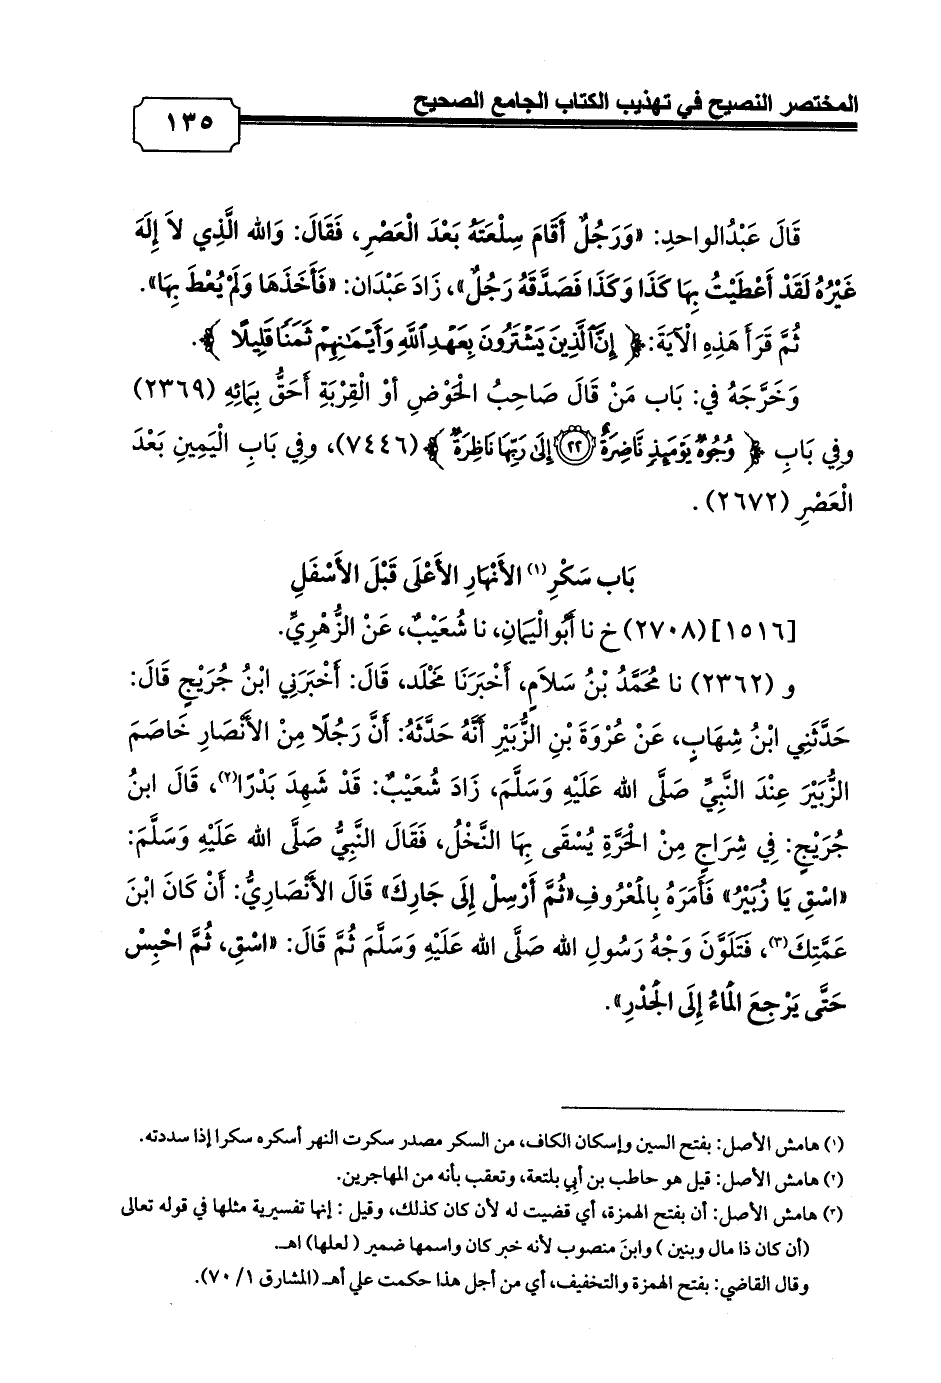 المختصر النصيح في تهذيب الكتاب الجامع الصحيح
١٣٥
قَالَ عَبْدُالواحدِ: «وَرَجُلٌ أَقَامَ سِلْعَتَهُ بَعْدَ الْعَصْرِ، فَقَالَ: وَالله الَّذِي لاَ إِلَهَ
غَيْرُهُ لَقَدْ أَعْطَيْتُ بِهَا كَذَا وَكَذَا فَصَدَّقَهُ رَجُلٌ»، زَادَ عَبْدَان: «فَأَخَذَهَا وَلَمْ يُعْطَ بِهَا».
ثُمَّ قَرَأَ هَذِهِ الْآيَةَ: ﴿إِنَّ ٱلَّذِينَ يَشْتَرُونَ بِعَهْدِ ٱللَّهِ وَأَيْمَـٰنِهِمْ ثَمَنًا قَلِيلًا﴾.
وَخَرَّجَهُ في: بَاب مَنْ قَالَ صَاحِبُ الحَوْضِ أوْ الْقِرْبَةِ أَحَقُّ بِمَائِهِ (٢٣٦٩)
وفِي بَابِ ﴿وُجُوهٌ يَوْمَئِذٍ نَّاضِرَةٌ ٢٢ إِلَىٰ رَبِّهَا نَاظِرَةٌ﴾ (٧٤٤٦)، وفِي بَابِ الْيَمِينِ بَعْدَ
الْعَصْرِ (٢٦٧٢).
بَاب سَكْرِ(١) الأَنْهَارِ الأَعْلَى قَبْلَ الأَسْفَلِ
[١٥١٦] (٢٧٠٨) خ نا أَبُوالْيَمَانِ، نا شُعَيْبٌ، عَنْ الزُّهْرِيِّ.
و (٢٣٦٢) نا مُحَمَّدُ بْنُ سَلاَمٍ، أَخْبَرَنَا مَخْلَد، قَالَ: أَخْبَرَنِي ابْنُ جُرَيْجٍ قَالَ:
حَدَّثَنِي ابْنُ شِهَابٍ، عَنْ عُرْوَةَ بْنِ الزُّبَيْرِ أَنَّهُ حَدَّثَهُ: أَنَّ رَجُلًا مِنْ الأَنْصَارِ خَاصَمَ
الزُّبَيْرَ عِنْدَ النَّبِيِّ صَلَّى الله عَلَيْهِ وَسَلَّمَ، زَادَ شُعَيْبٌ: قَدْ شَهِدَ بَدْرًا(٢)، قَالَ ابنُ
جُرَيْجٍ: فِي شِرَاجٍ مِنْ الْحَرَّةِ يُسْقَى بِهَا النَّخْلُ، فَقَالَ النَّبِيُّ صَلَّى الله عَلَيْهِ وَسَلَّمَ:
«اسْقِ يَا زُبَيْرُ» فَأَمَرَهُ بِالمَعْرُوفِ«ثُمَّ أَرْسِلْ إِلَى جَارِكَ» قَالَ الأَنْصَارِيُّ: أَنْ كَانَ ابْنَ
عَمَّتِكَ(٣)، فَتَلَوَّنَ وَجْهُ رَسُولِ الله صَلَّى الله عَلَيْهِ وَسَلَّمَ ثُمَّ قَالَ: «اسْقِ، ثُمَّ احْبِسْ
حَتَّى يَرْجِعَ المَاءُ إِلَى الجَدْرِ».
(١) هامش الأصل: بفتح السين وإسكان الكاف، من السكر مصدر سكرت النهر أسكره سكرا إذا سددته.
(٢) هامش الأصل: قيل هو حاطب بن أبي بلتعة، وتعقب بأنه من المهاجرين.
(٣) هامش الأصل: أن بفتح الهمزة، أي قضيت له لأن كان كذلك، وقيل : إنها تفسيرية مثلها في قوله تعالى
(أن كان ذا مال وبنين ) وابنَ منصوب لأنه خبر كان واسمها ضمير ( لعلها) اهـ.
وقال القاضي: بفتح الهمزة والتخفيف، أي من أجل هذا حكمت علي أهـ (المشارق ١/ ٧٠).